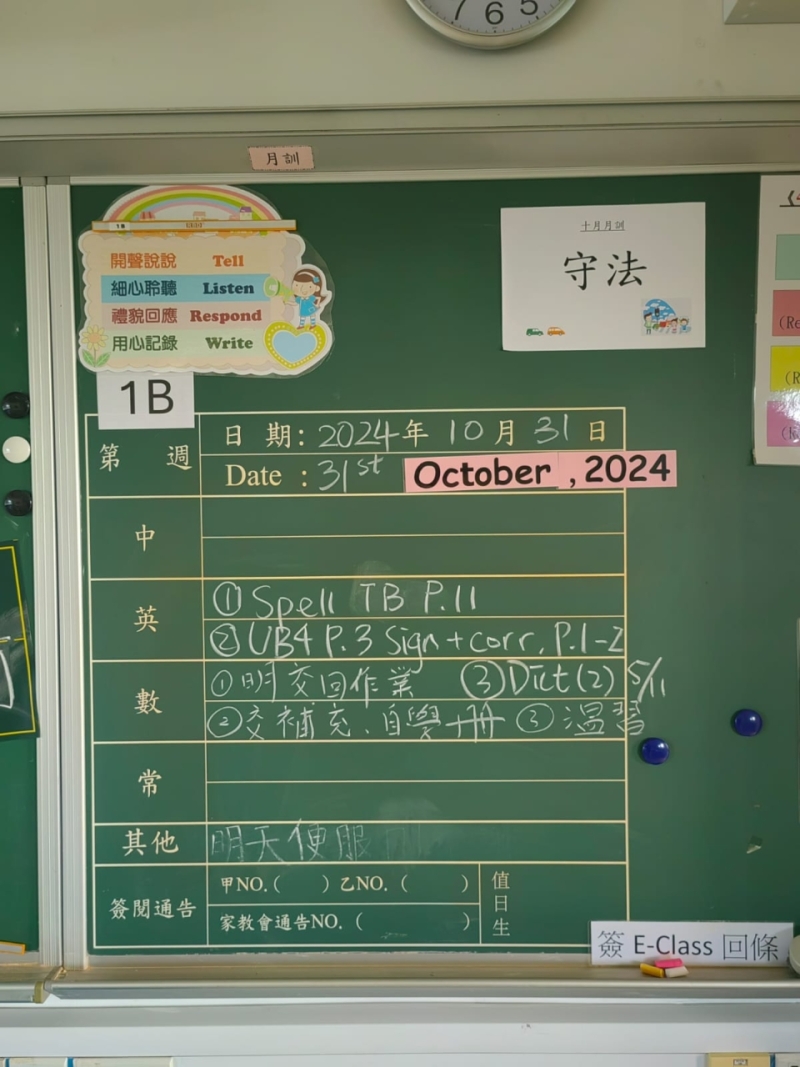 7 6 5
月訓
1B
開聲說說 Tell
細心聆聽 Listen
禮貌回應 Respond
用心記錄 Write
十月月訓
守法
(Re
(R
1B
第 週
日 期: 2024年 10月 31日
Date : 31st October , 2024
中
英
① Spell TB P.11
② UB4 P.3 Sign + corr. P.1-2
數
① 明交回作業 ③ Dict(2) 5/11
② 交補充、自學冊 ③ 溫習
常
其他
明天便服
簽閱通告
甲NO.( ) 乙NO. ( )
家教會通告NO. ( )
值日生
簽 E-Class 回條